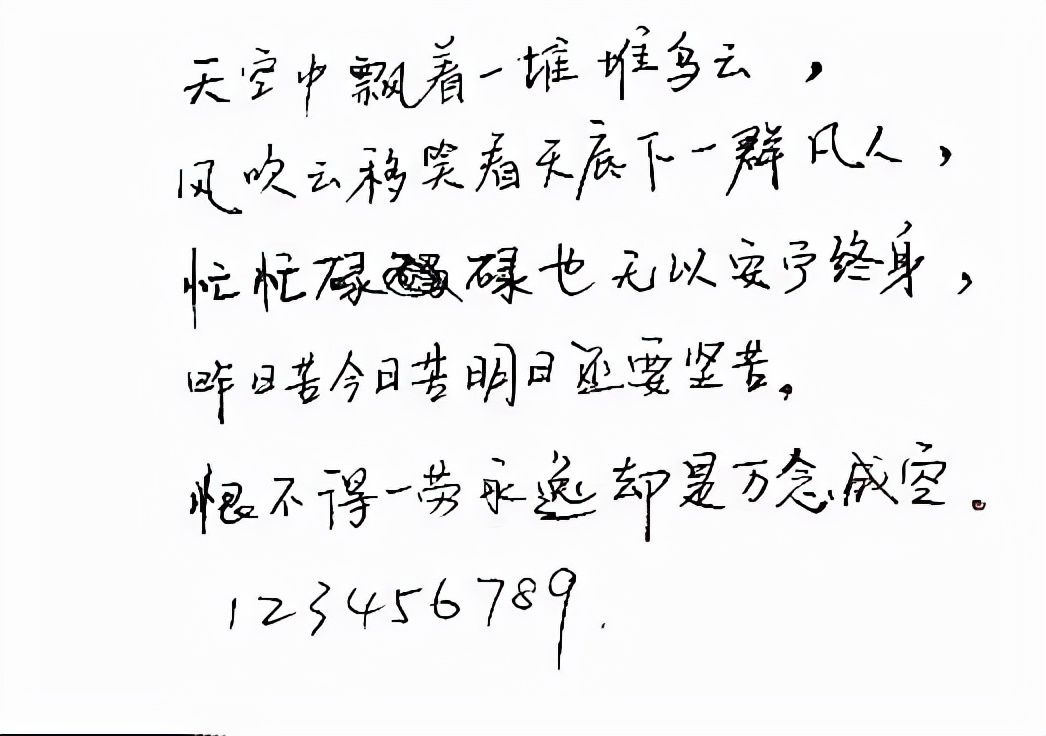 天空中飘着一堆堆乌云，
风吹云移笑看天底下一群凡人，
忙忙碌碌也无以安宁终身，
昨日苦今日苦明日还要坚苦。
恨不得一劳永逸却是万念成空。
123456789.